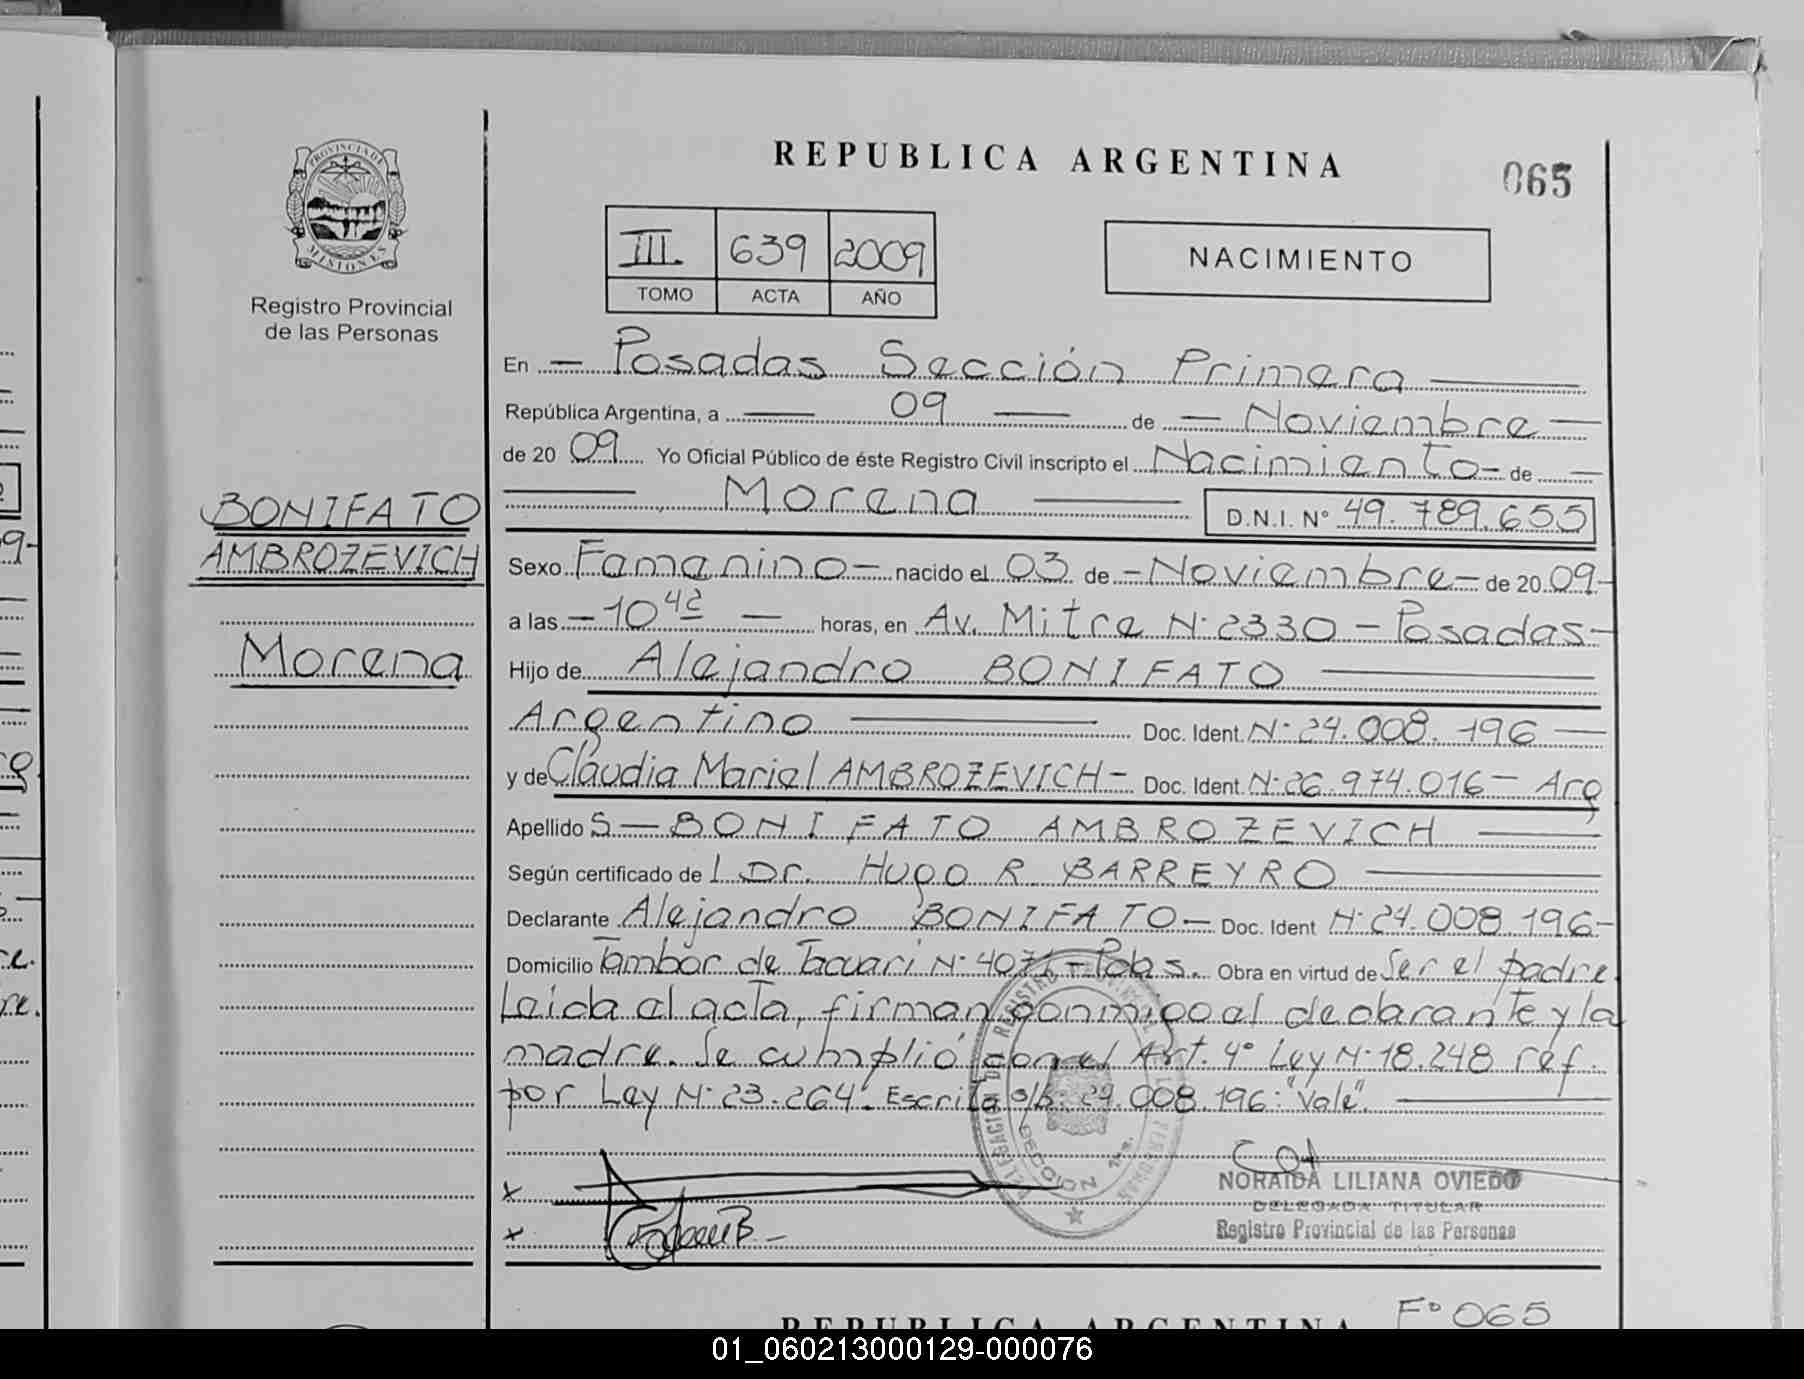 REPUBLICA ARGENTINA
065
PROVINCIA DE
MISIONES
Registro Provincial
de las Personas
III. 639 2009
TOMO ACTA AÑO
NACIMIENTO
En — Posadas Sección Primera —
República Argentina, a — 09 — de — Noviembre —
de 20 09 Yo Oficial Público de éste Registro Civil inscripto el Nacimiento — de —
— Morena — D.N.I. N° 49.789.655
BONIFATO
AMBROZEVICH
Morena
Sexo Femenino — nacido el 03 de — Noviembre — de 20 09 —
a las — 10 42 — horas, en Av. Mitre N° 2330 — Posadas —
Hijo de Alejandro BONIFATO —
Argentino — Doc. Ident. N° 24.008.196 —
y de Claudia Mariel AMBROZEVICH — Doc. Ident. N° 26.974.016 — Arg
Apellido S — BONIFATO AMBROZEVICH —
Según certificado de l Dr. Hugo R. BARREYRO —
Declarante Alejandro BONIFATO — Doc. Ident N° 24.008.196 —
Domicilio Tambor de Tacuari N° 4071 — Pdas. Obra en virtud de Ser el padre.
Leida el acta, firman conmigo el declarante y la
madre. Se cumplió con el Art. 4° Ley N° 18.248 ref.
por Ley N° 23.264. Escrito s/b: 24.008.196: "Vale". —
x
x
NORAIDA LILIANA OVIEDO
DELEGADA TITULAR
Registro Provincial de las Personas
F° 065
REPUBLICA ARGENTINA
01_060213000129-000076